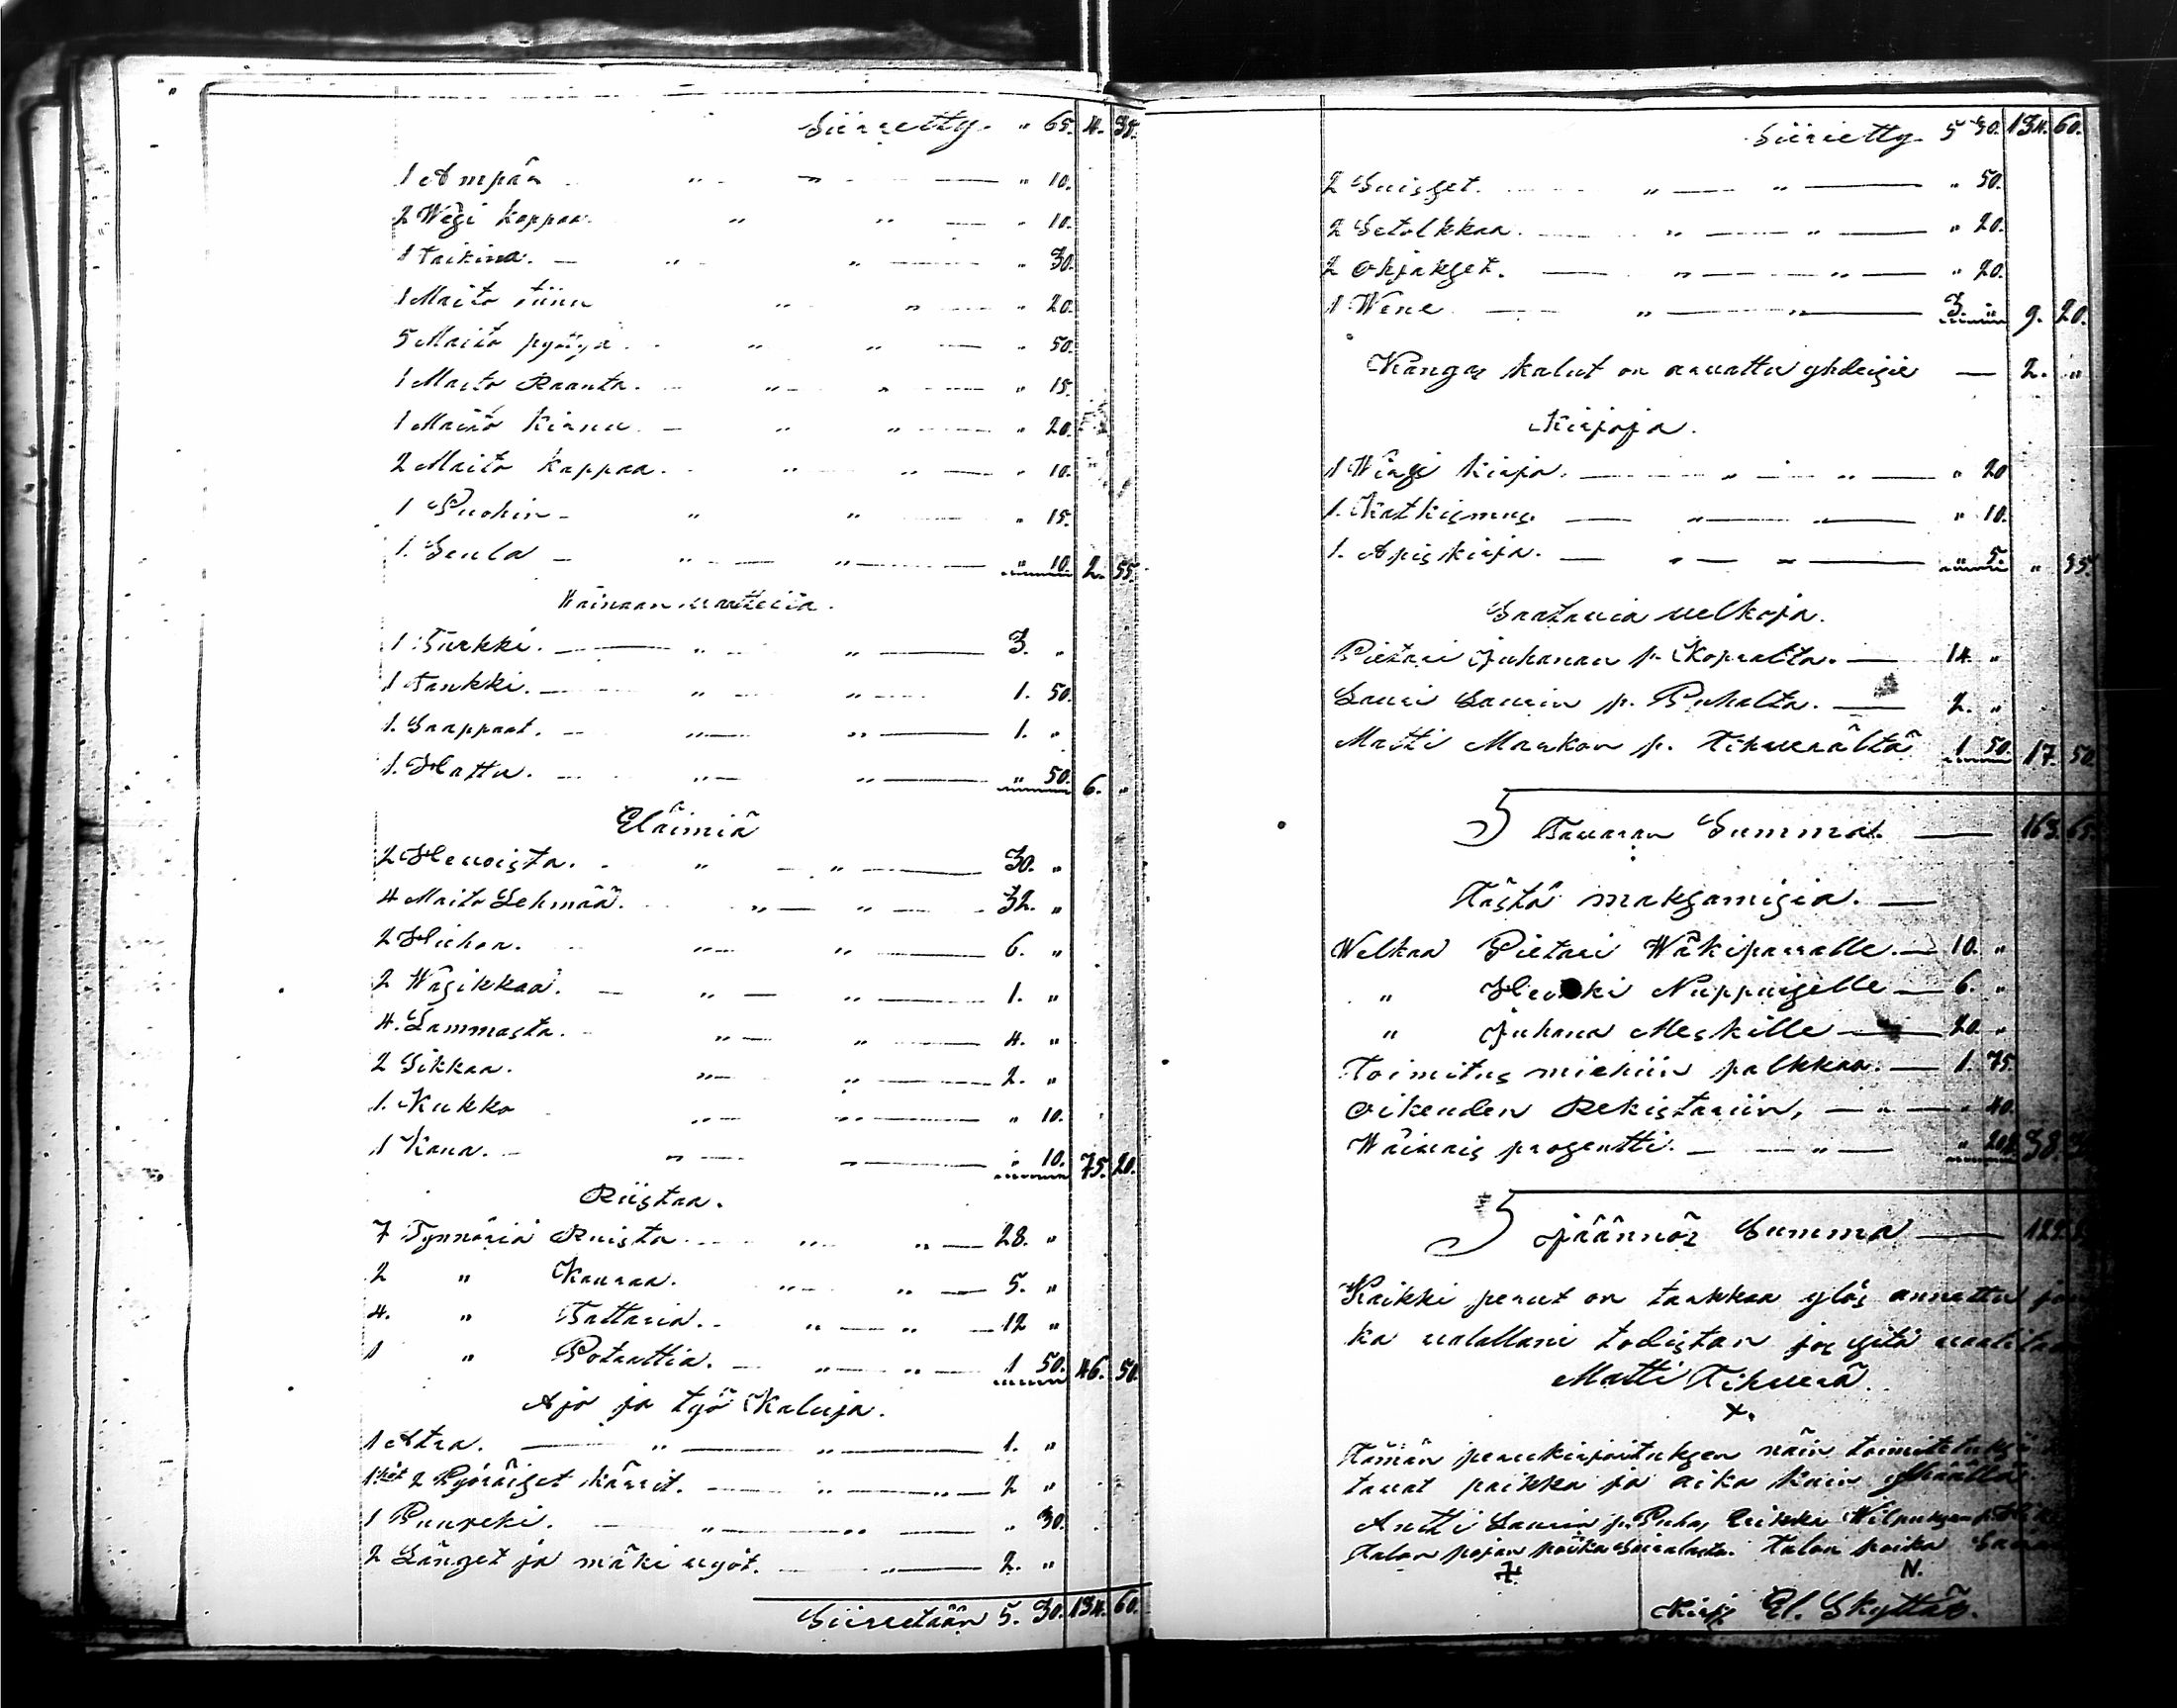 Siirretty. " 65. 4. 35.
1 Ampäri " " " 10.
2 Wesi kappaa. " " " 10.
1 taikina. " " " 30.
1 Maito tiinu " " " 20.
5 Maito pyttyä. " " " 50.
1 Maito Raanta. " " " 15.
1 Maito kirnu. " " " 20.
2 Maito kappaa. " " " 10.
1 Puohin " " " 15.
1. Seula " " " 10. 2. 55.
Wainaan waatteita.
1 Turkki. " " 3. "
1 Takki. " " 1. 50.
1. Saappaat. " " 1. "
1. Hattu. " " " 50. 6. "
Eläimiä
2 Hewoista. " " 30. "
4 Maito Lehmää. " " 32. "
2 Hiehoa. " " 6. "
2 Wasikkaa. " " 1. "
4. Lammasta. " " 4. "
2 Sikkaa. " " 2. "
1. Kukko " " " 10.
1 Kana. " " " 10. 75. 20.
Riistaa.
7 Tynnöriä Ruista " " 28. "
2 " Kauraa. " " 5. "
4. " Tattaria. " " 12 "
1 " Potaattia. " " 1 50. 46. 50.
Ajo ja työ Kaluja.
1 Atra. " " 1. "
1het 2 Pyöräiset kärrit. " " 2 "
1 Puureki. " " " 30.
2 Länget ja mäki wyöt. " 2. "
Siirretään 5. 30. 134. 60.
Siirretty. 5 30. 134. 60.
2 Suiset. " " " 50.
2 Satolkkaa. " " " 20.
2 Ohjakset. " " " 20.
1 Wene " " 3 " 9. 20.
Kangas kalut on arwattu yhdeisie 2. "
Kirjoja.
1 Wirsi kirja. " " " 20
1. Katkismus. " " " 10.
1. Apis kirja. " " " 5. " 35.
Saatawia welkoja.
Pietari Juhanan p. Kopralta. 14 "
Lauri Laurin p. Puhalta. 2. "
Matti Markon p. Tihwerältä 1 50. 17. 50
Tawaran Summa. 163. 65.
Tästä maksamisia.
Welkaa Pietari Wäkiparralle. 10. "
" Heikki Nuppuiselle 6. "
" Juhana Meskille 20. "
Toimitus miehiin palkkaa. 1. 75.
Oikeuden Rekistariin, " " 40.
Waiwais prosentti. " " 20½ 38.
Jäännös Summa
Kaikki perut on tarkkaa ylös annettu jon
ka walallani todistan jos sitä waaditaan
Matti Tihwerä.
x.
Tämän perukirjoituksen näin toimitetuksi
tawat paikka ja aika kuin ylhäällä
Antti Laurin p. Puha, Erikki Wilpuksen p.
Talon pojan poika Sairalasta. Talon poika
N.
Kirj. El. Skyttäs.